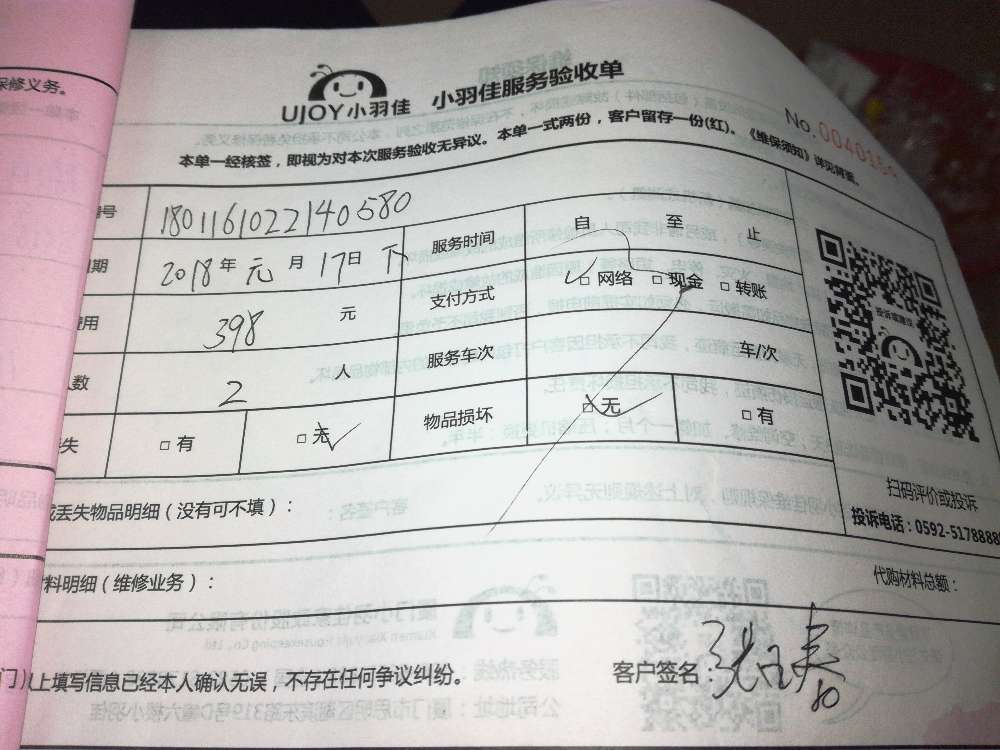 保修义务。
UJOY小羽佳 小羽佳服务验收单
No.
本单一经核签，即视为对本次服务验收无异议。本单一式两份，客户留存一份(红)。《维保须知》详见背面。
号 1801161022140580
期 2018年 元 月 17日 下 服务时间 自 至 止
用 398 元 支付方式 □ 网络 □ 现金 □ 转账
人数 2 人 服务车次 车/次
失 □ 有 □ 无 物品损坏 □ 无 □ 有
投诉或建议
扫码评价或投诉
投诉电话：0592-5178888
丢失物品明细（没有可不填）：
料明细（维修业务）： 代购材料总额：
门）以上填写信息已经本人确认无误，不存在任何争议纠纷。 客户签名：